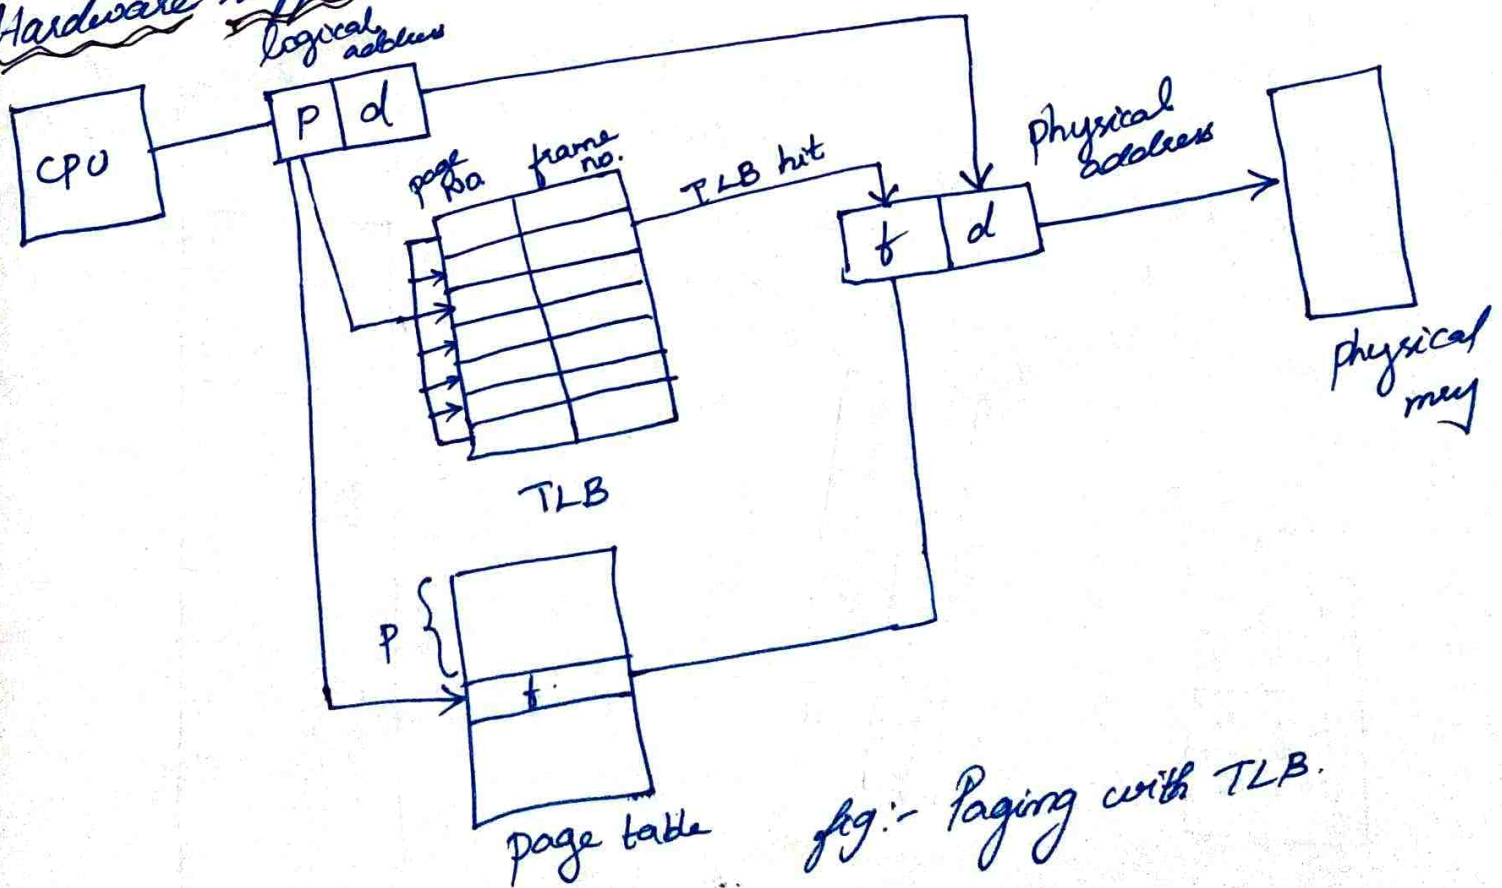 Hardware
logical
address
CPU
p d
page
no.
frame
no.
TLB hit
physical
address
f d
physical
mey
TLB
p
f
page table
fig:- Paging with TLB.